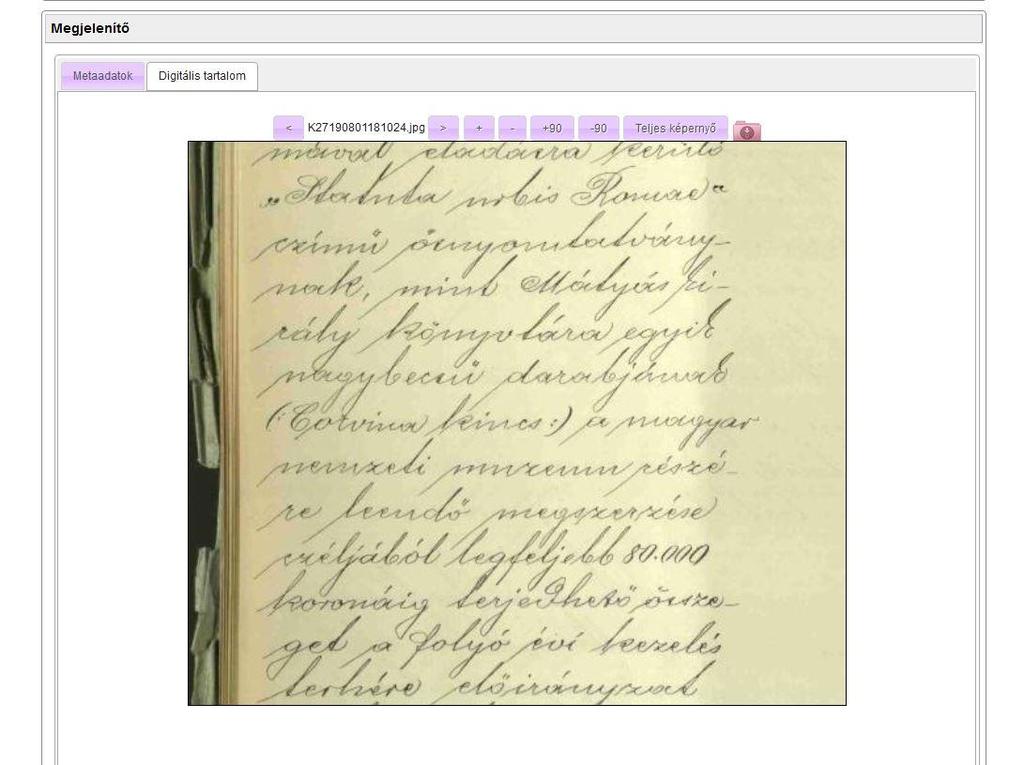 Megjelenítő
Metaadatok Digitális tartalom
< K27190801181024.jpg > + - +90 -90 Teljes képernyő
mával eladásra kerülő
„Statuta urbis Romae“
czímű ősnyomtatvány-
nak, mint Mátyás ki-
rály könyvtára egyik
nagybecsű darabjának
(:Corvina kincs:) a magyar
nemzeti muzeum részé-
re leendő megszerzése
czéljából legfeljebb 80.000
koronáig terjedhető össze-
get a folyó évi kezelés
terhére előirányzat